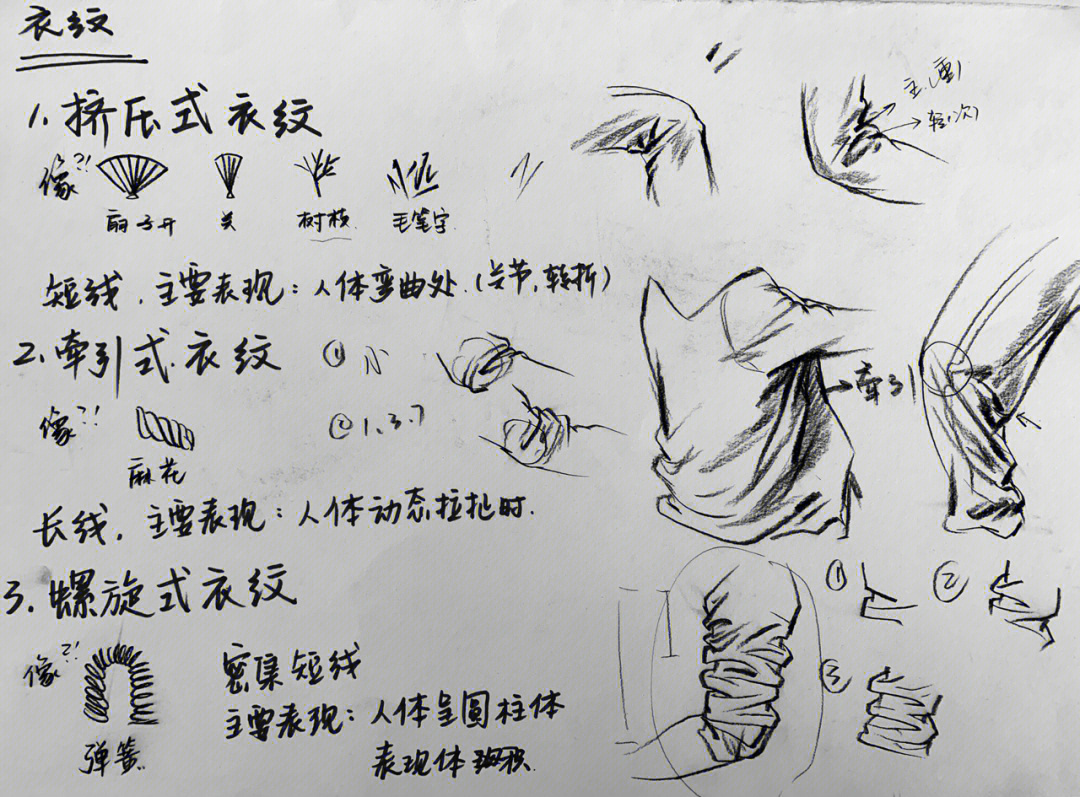 衣纹
1. 挤压式衣纹
像?!
扇子开 关 树枝 毛笔字
短线，主要表现：人体弯曲处.（关节，转折）
主(重)
轻(次)
2. 牵引式衣纹 ① 小
像?! ② 1、3、7
麻花
长线，主要表现：人体动态拉扯时.
→牵引
3. 螺旋式衣纹
像?!
弹簧
密集短线
主要表现：人体呈圆柱体
表现体积
① ②
③